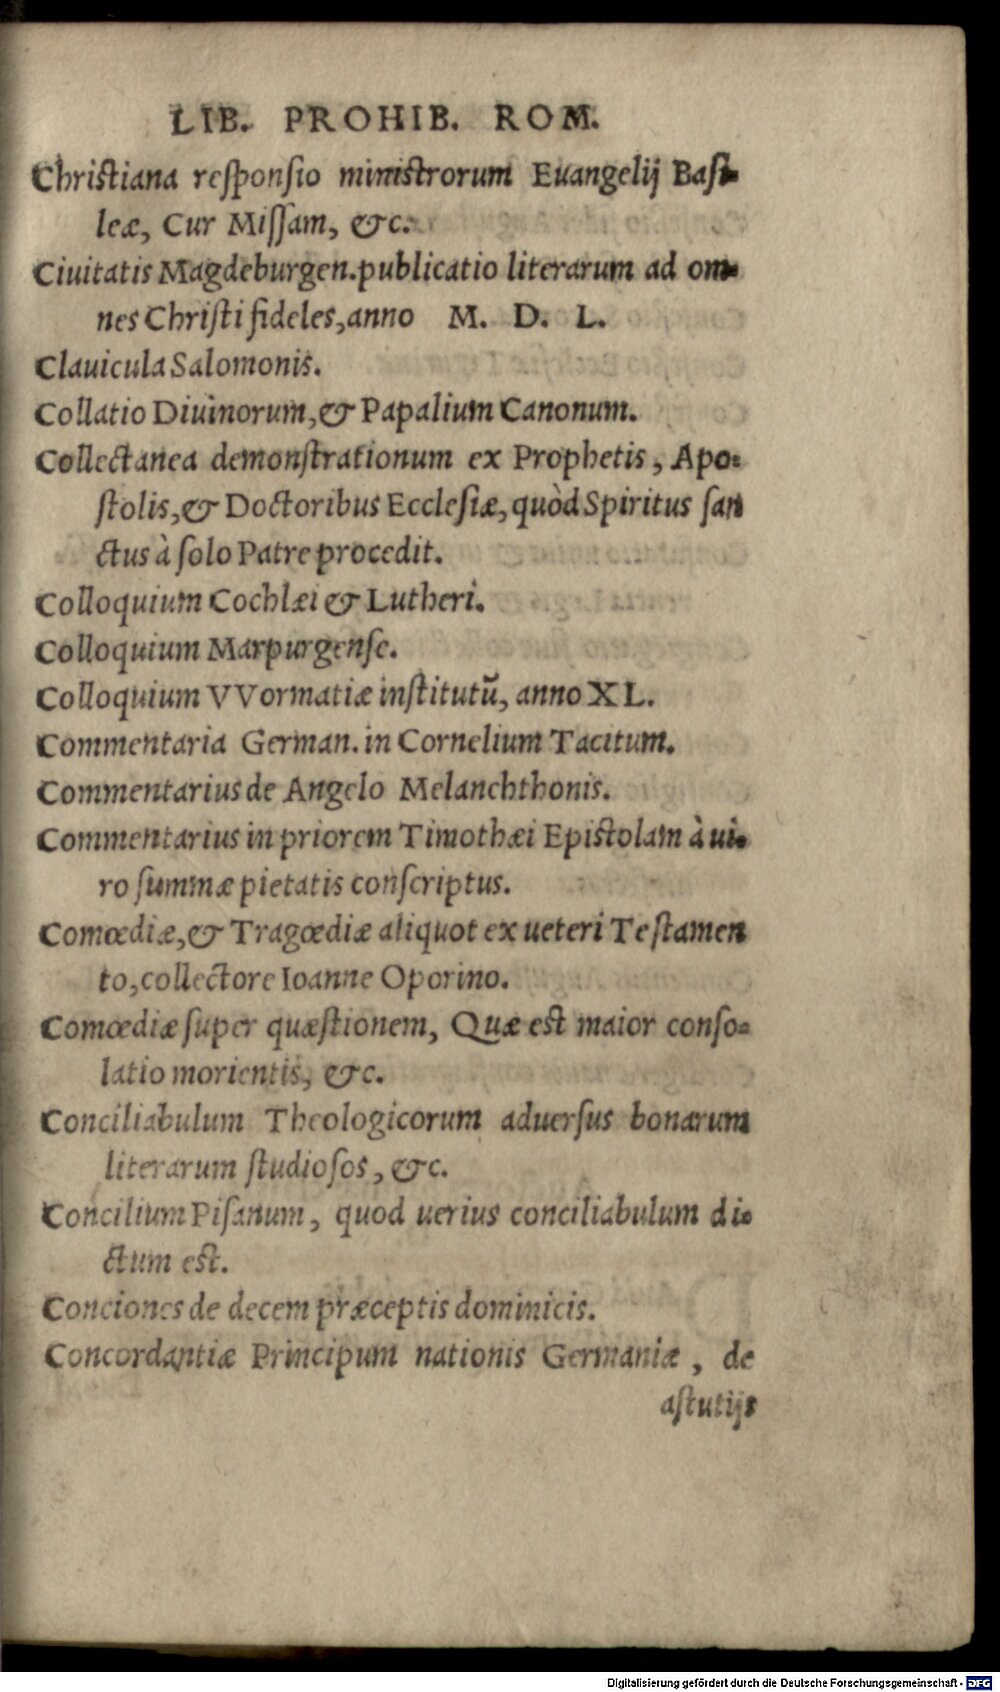 LIB. PROHIB. ROM.
Christiana responsio ministrorum Euangelij Basi-
leæ, Cur Missam, &c.
Ciuitatis Magdeburgen.publicatio literarum ad om-
nes Christi fideles,anno M. D. L.
Clauicula Salomonis.
Collatio Diuinorum,& Papalium Canonum.
Collectanea demonstrationum ex Prophetis, Apo-
stolis,& Doctoribus Ecclesiæ,quòd Spiritus san
ctus à solo Patre procedit.
Colloquium Cochlæi & Lutheri.
Colloquium Marpurgense.
Colloquium VVormatiæ institutū, anno XL.
Commentaria German. in Cornelium Tacitum.
Commentarius de Angelo Melanchthonis.
Commentarius in priorem Timothæi Epistolam à ui-
ro summæ pietatis conscriptus.
Comœdiæ,& Tragœdiæ aliquot ex ueteri Testamen
to,collectore Ioanne Oporino.
Comœdiæ super quæstionem, Quæ est maior conso-
latio morientis, &c.
Conciliabulum Theologicorum aduersus bonarum
literarum studiosos, &c.
Concilium Pisanum, quod uerius conciliabulum di-
ctum est.
Conciones de decem præceptis dominicis.
Concordantiæ Principum nationis Germaniæ, de
astutijs
Digitalisierung gefördert durch die Deutsche Forschungsgemeinschaft - DFG